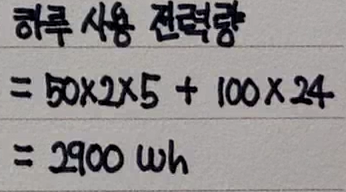 하루 사용 전력량
= 50×2×5 + 100×24
= 2900 Wh